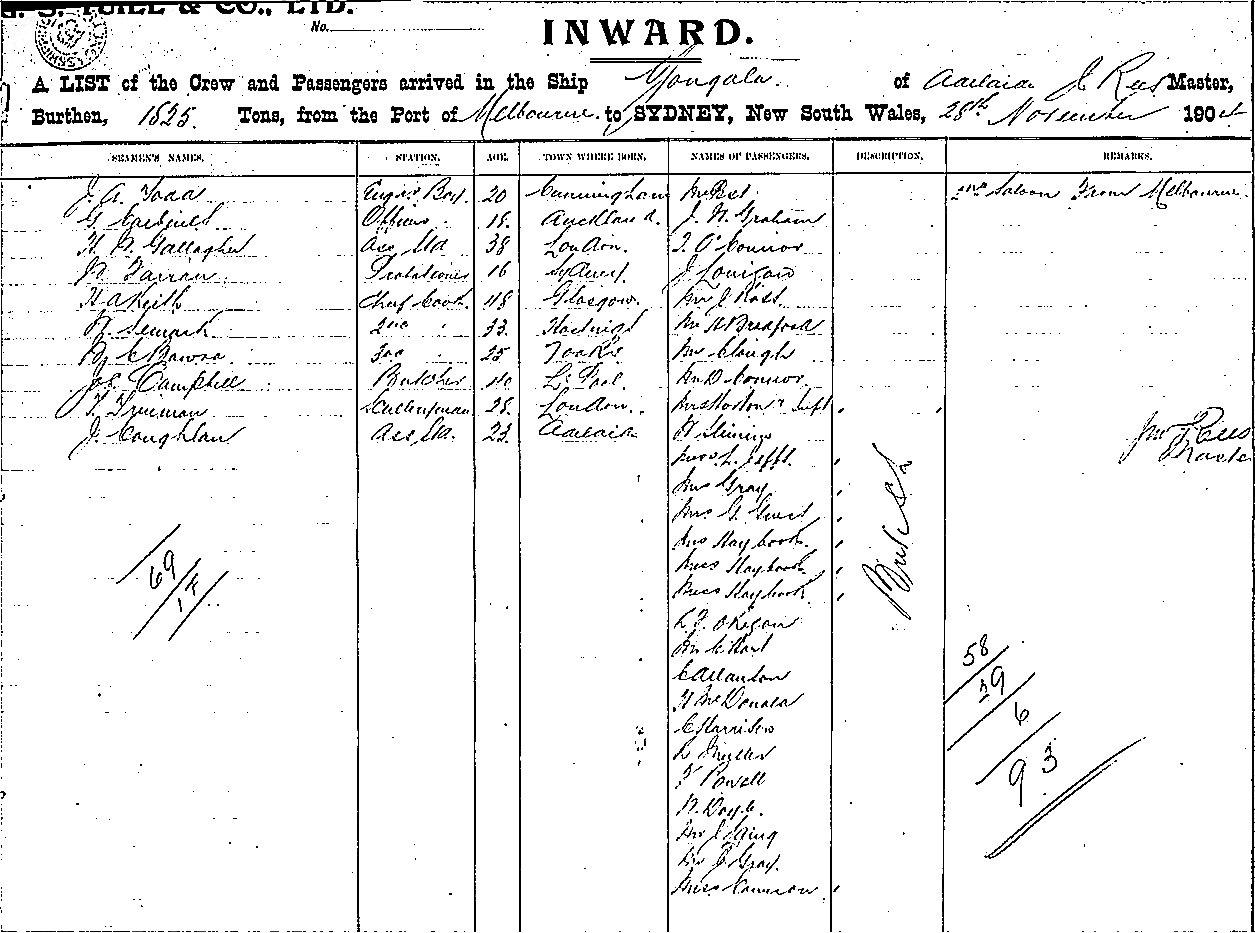 G. S. YUILL & CO., LTD.
No.
INWARD.
A LIST of the Crew and Passengers arrived in the Ship Yongala of Adelaide J Rees Master,
Burthen, 1825 Tons, from the Port of Melbourne to SYDNEY, New South Wales, 28th November 190
SEAMEN'S NAMES. STATION. AGE. TOWN WHERE BORN. NAMES OF PASSENGERS. DESCRIPTION. REMARKS.
J. A. Todd Engrs Boy 20 Cunningham 2nd Saloon From Melbourne
G. Officers 18 Auckland. J. N. Graham
H. A. Gallagher Ass. Std 38 London. T. O'Connor
N. Farran Probationer 16 Sydney J
H A Keith Chief Cook 48 Glasgow. Mr J. Ross
2nd " 33 Hastings Mr H Bradford
3rd " 25 Mr Clough
Jos Campbell Butcher 40 L. Pool. Mr D Connor
T. Trueman Sculleryman 28 London. Mrs Horton & Inft "
J. Coughlan Ass. Std. 23 Adelaide Jno Rees
Master
Mrs Gray "
Mrs G. Guest "
Mrs Haybook "
Miss Haybook "
Miss Haybook "
British
69
17
H McDonald
C Harrison
L Muller
T Powell
N. Doyle
Mr J King
Mr J Gray
Miss Cameron "
58
29
6
93